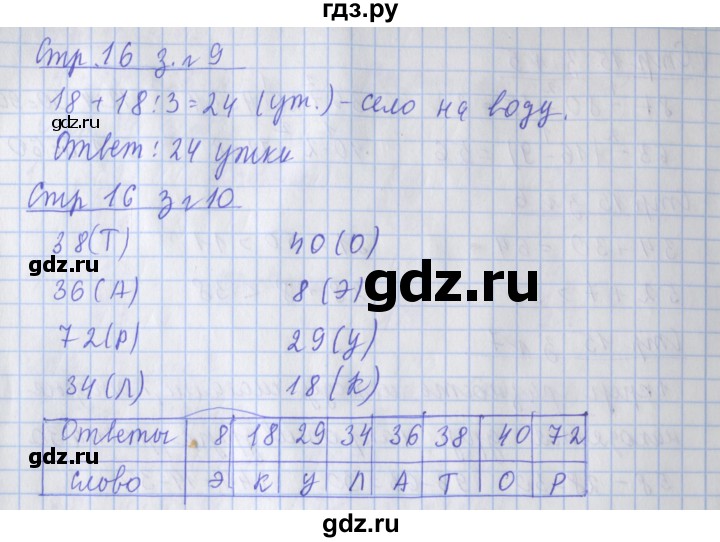 гдз.ру
Стр.16 з.г 9
18 + 18:3=24 (ут.) - село на воду.
gdz.ru
Ответ: 24 утки
Стр 16 з г 10
38(Т) 40(О)
gdz.ru
gdz.ru
36(А) 8(Э)
72(Р) 29(У)
gdz.ru
34(Л) 18(К)
Ответы 8 18 29 34 36 38 40 72
gdz.ru
Слово Э К У Л А Т О Р
gdz.ru